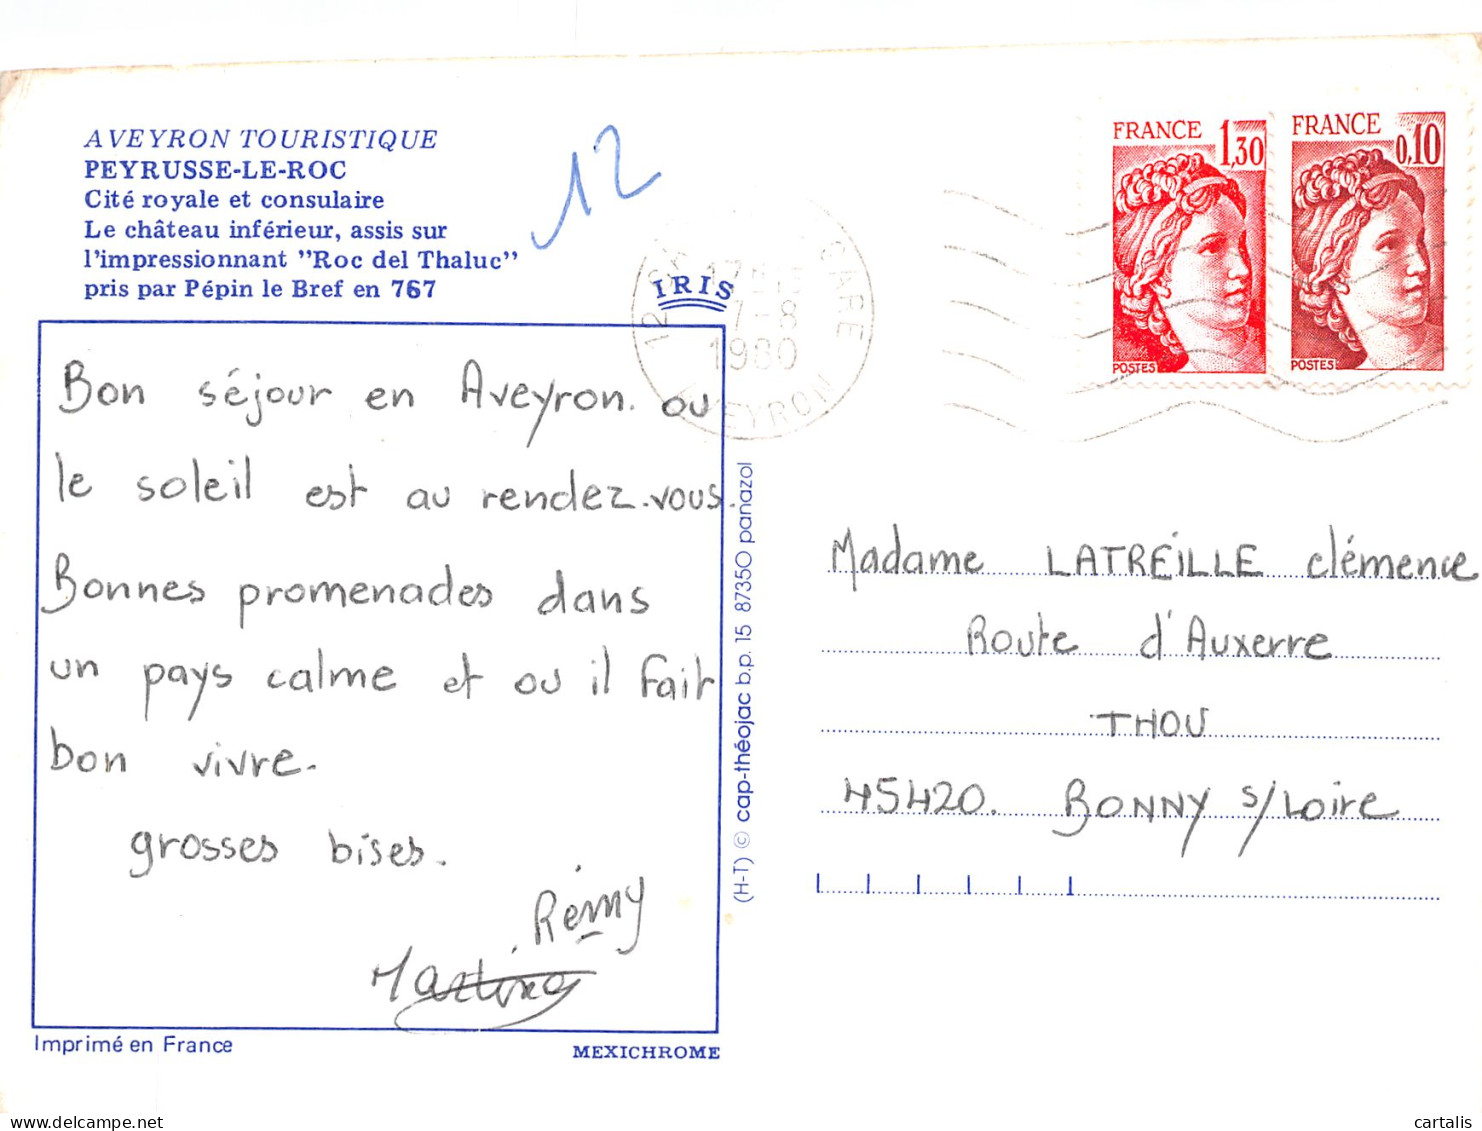 AVEYRON TOURISTIQUE
PEYRUSSE-LE-ROC
Cité royale et consulaire
Le château inférieur, assis sur
l'impressionnant "Roc del Thaluc"
pris par Pépin le Bref en 767
12
IRIS
12
GARE
7-8
1980
AVEYRON
FRANCE 1,30
POSTES
FRANCE 0,10
POSTES
Bon séjour en Aveyron. ou
le soleil est au rendez-vous.
Bonnes promenades dans
un pays calme et ou il fait
bon vivre.
grosses bises.
Rémy
Martine
Madame LATREILLE clémence
Route d'Auxerre
THOU
45420. BONNY s/Loire
(H-T) © cap-théojac b.p. 15 87350 panazol
Imprimé en France
MEXICHROME
cartalis